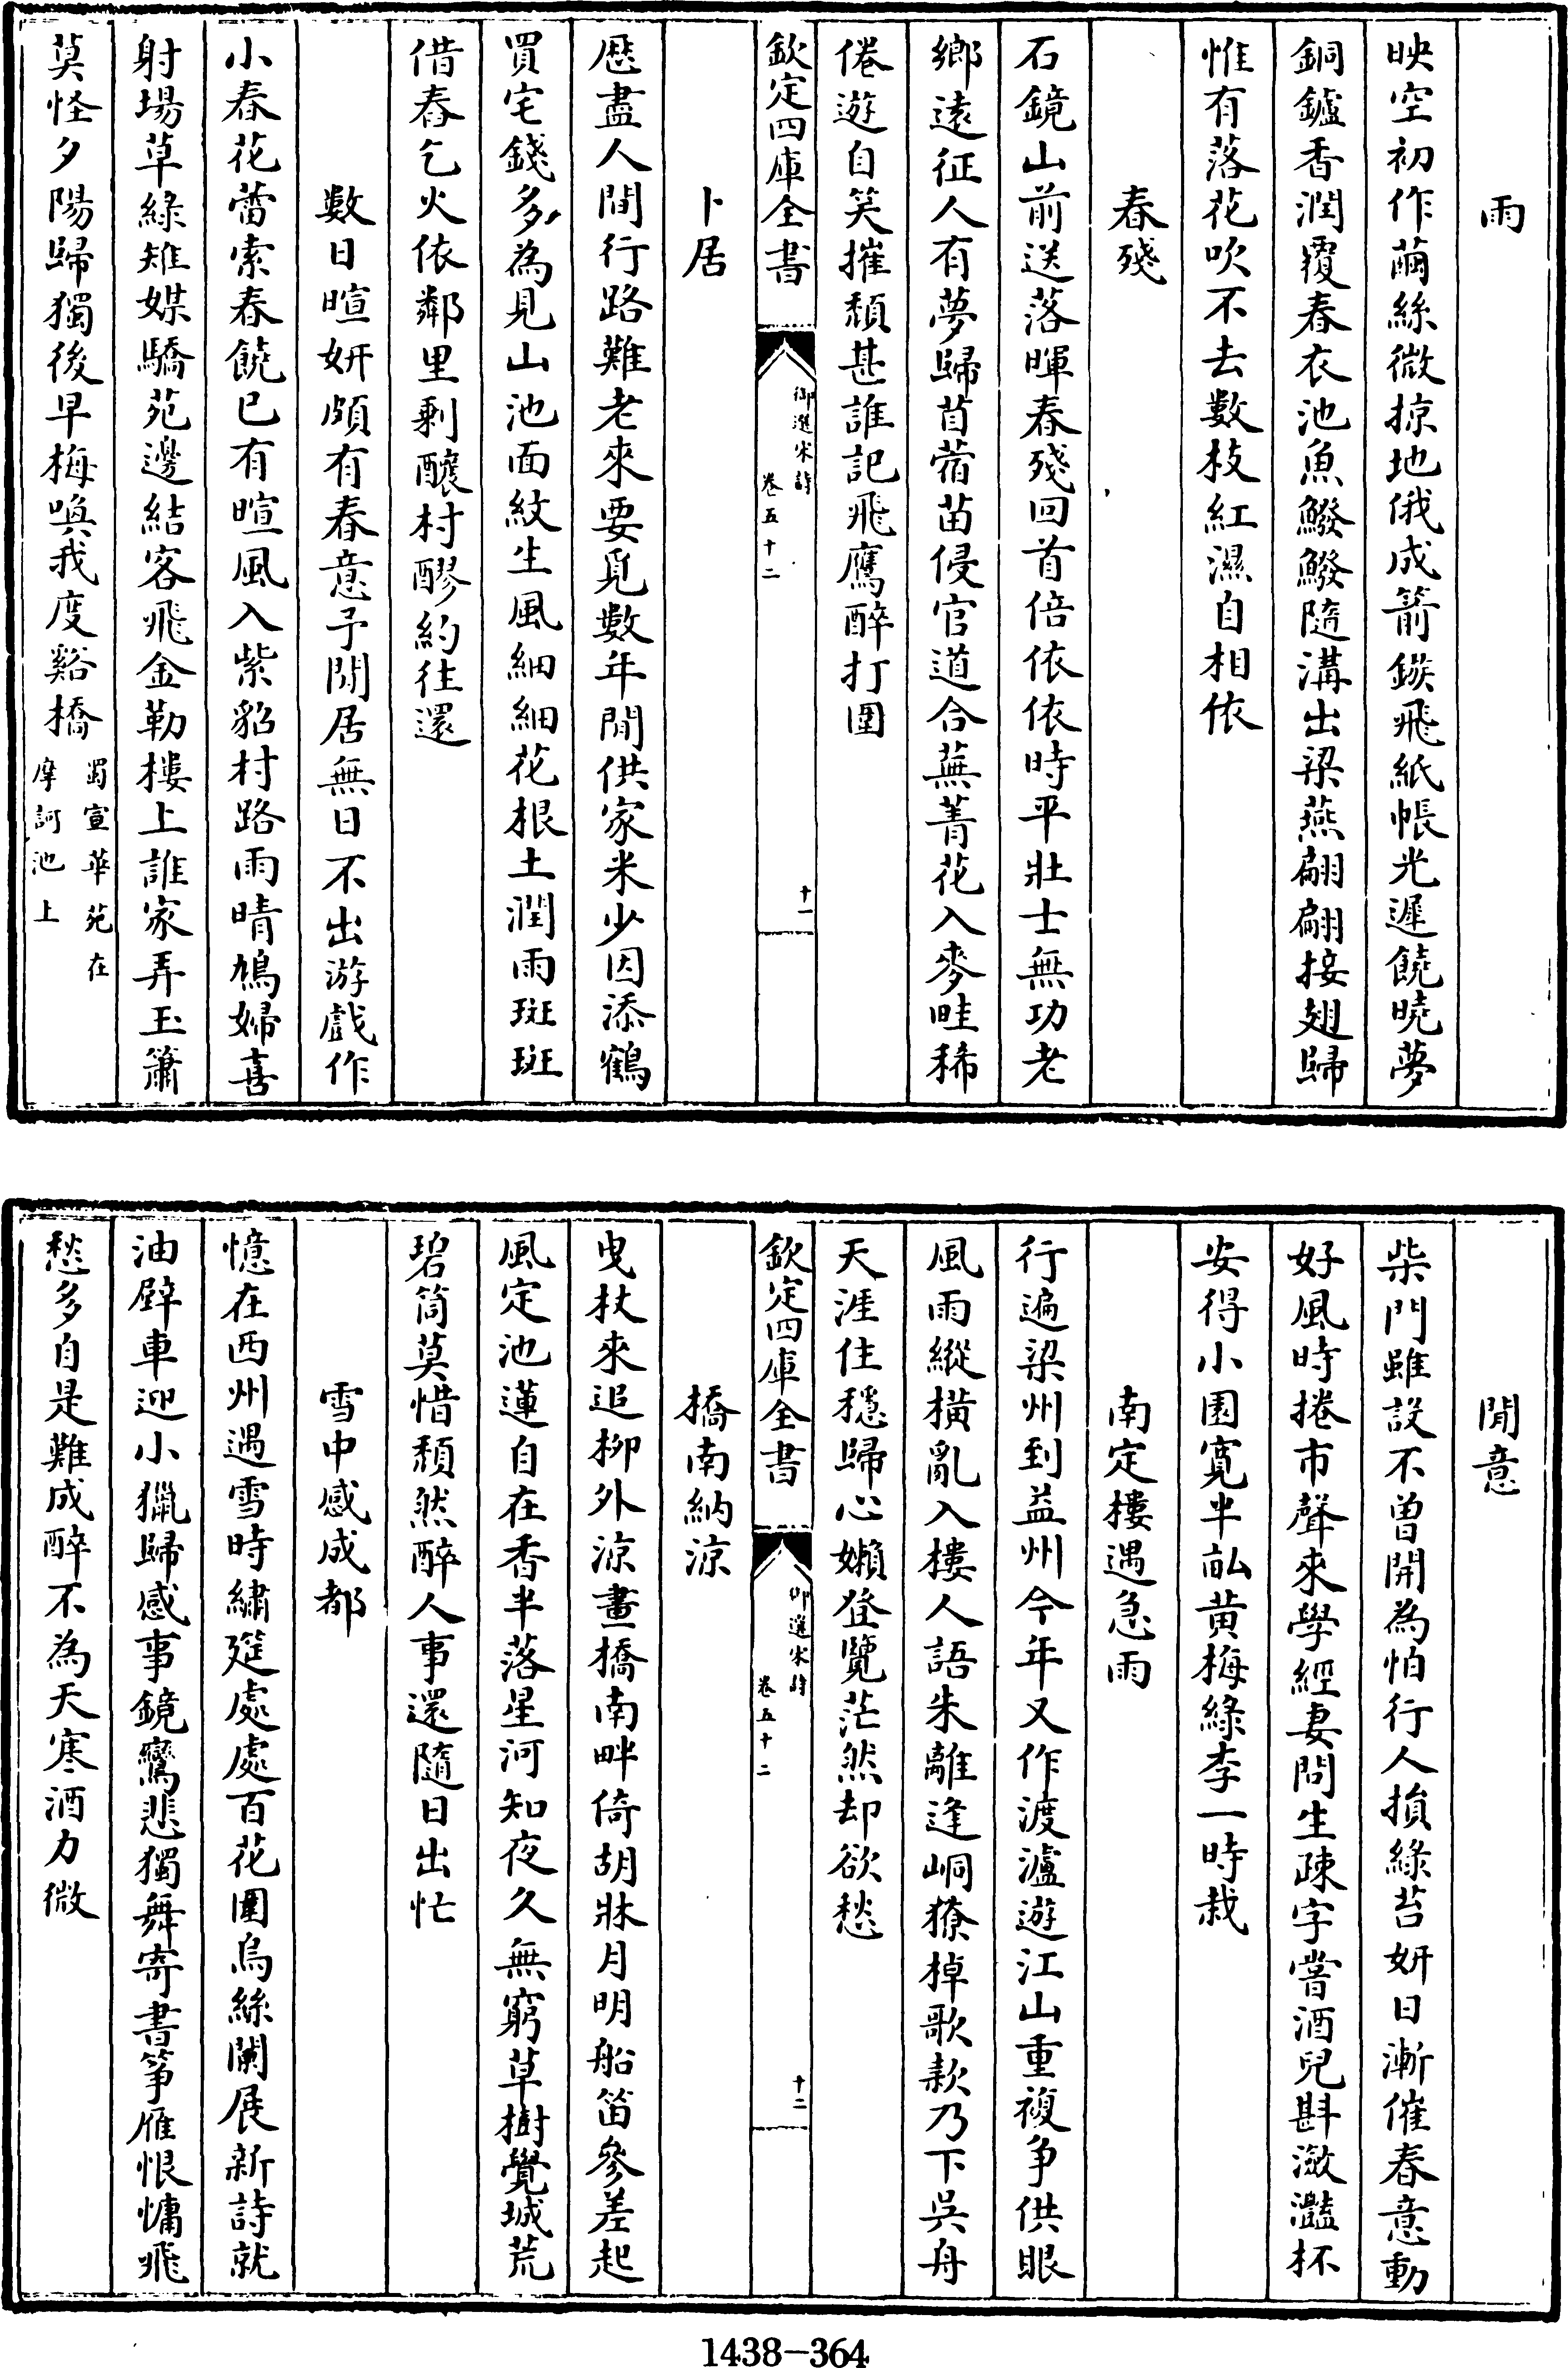 雨
映空初作繭絲微掠地俄成箭鏃飛紙帳光遲饒曉夢
銅鑪香潤覆春衣池魚鱍鱍隨溝出梁燕翩翩接翅歸
惟有落花吹不去數枝紅濕自相依
春殘
石鏡山前送落暉春殘回首倍依依時平壯士無功老
鄉遠征人有夢歸苜蓿苗侵官道合蕪菁花入麥畦稀
倦遊自笑摧頽甚誰記飛鷹醉打圍
欽定四庫全書
御選宋詩
卷五十二
十一
卜居
歴盡人間行路難老來要覓數年閒供家米少因添鶴
買宅錢多為見山池面紋生風細細花根土潤雨斑斑
借舂乞火依鄰里剩釀村醪約往還
數日暄妍頗有春意予閒居無日不出游戲作
小春花蕾索春饒已有暄風入紫貂村路雨晴鳩婦喜
射場草綠雉媒驕苑邊結客飛金勒樓上誰家弄玉簫
莫怪夕陽歸獨後早梅喚我度谿橋
蜀宣華苑在
摩訶池上
閒意
柴門雖設不曽開為怕行人損綠苔妍日漸催春意動
好風時捲市聲來學經妻問生疎字嘗酒兒斟瀲灩杯
安得小園寛半畝黄梅綠李一時栽
南定樓遇急雨
行遍梁州到益州今年又作渡瀘遊江山重複争供眼
風雨縱橫亂入樓人語朱離逢峒獠棹歌欸乃下吳舟
天涯住穩歸心嬾登覽茫然却欲愁
欽定四庫全書
御選宋詩
卷五十二
十二
橋南納涼
曳杖來追栁外涼畫橋南畔倚胡牀月明船笛參差起
風定池蓮自在香半落星河知夜久無窮草樹覺城荒
碧筒莫惜頽然醉人事還隨日出忙
雪中感成都
憶在西州遇雪時繡筵處處百花圍烏絲闌展新詩就
油壁車迎小獵歸感事鏡鸞悲獨舞寄書筝雁恨慵飛
愁多自是難成醉不為天寒酒力微
1438-364